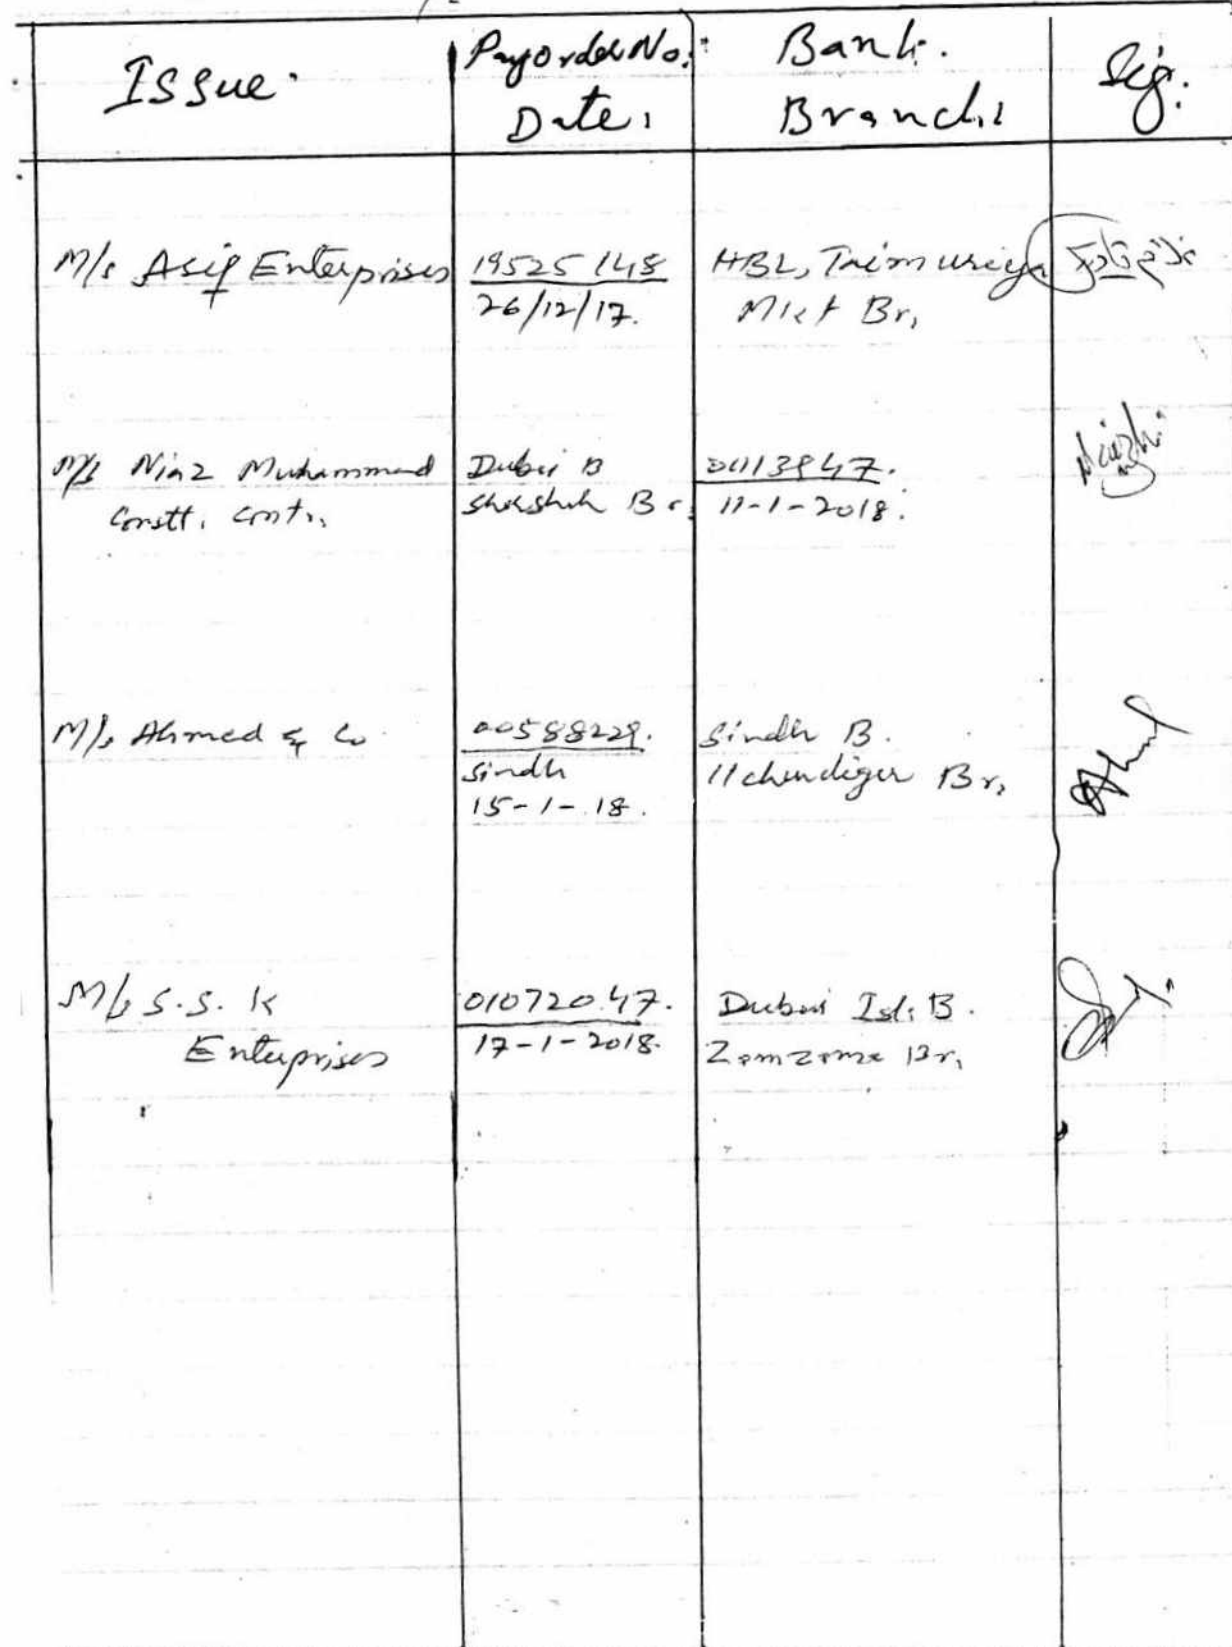 Issue.
PayOrder No:
Date:
Bank.
Branch:
Sig:
M/s Asif Enterprises
19525148
26/12/17.
HBL, Taimuriya
Mkt Br,
M/s Niaz Muhammad
Constt. Contr.
Dubai B
Br.
11-1-2018.
M/s Ahmed & Co
00588229.
Sindh
15-1-18.
Sindh B.
Br,
M/s S.S.K
Enterprises
01072047.
17-1-2018.
Dubai Isl. B.
Zamzama Br,